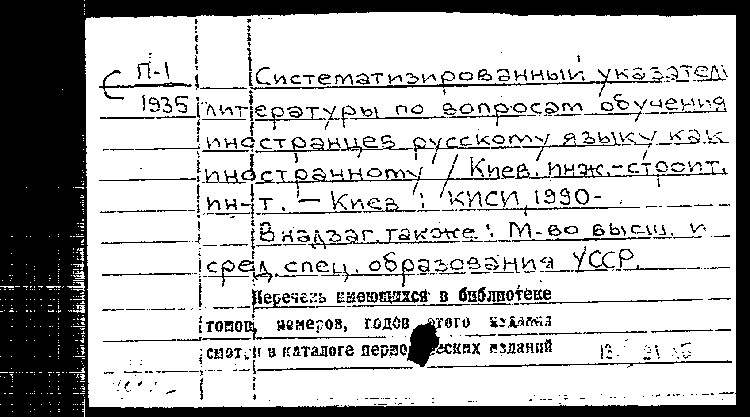 П-1
С
1935
Систематизированный указатель
литературы по вопросам обучения
иностранцев русскому языку как
иностранному / Киев. инж.-строит.
ин-т. – Киев : КИСИ, 1990-
В надзаг. также: М-во высш. и
сред. спец. образования УССР.
Перечень имеющихся в библиотеке
томов, номеров, годов этого издания
смотри в каталоге периодических изданий